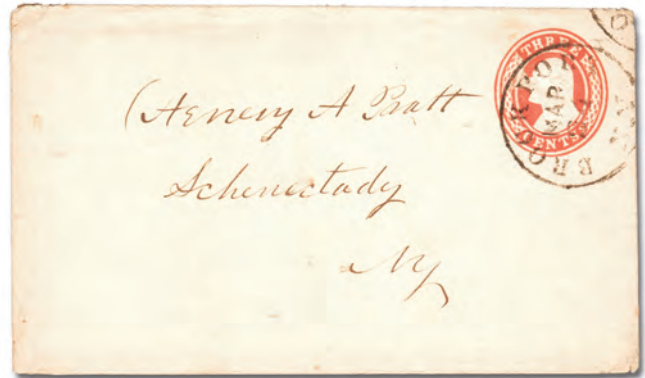 THREE
CENTS
BROCKPO
MAR
Henery A Pratt
Schenectady
Ny